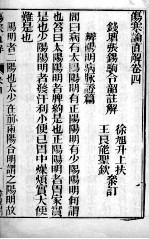 傷寒論直解卷四
徐旭升上扶
錢塘張錫駒令韶註解
叅訂
王良能聖欽
辯陽明病脉證篇
問曰病有太陽陽明有正陽陽明有少陽陽明何謂
也答曰太陽陽明者脾約是也正陽陽明者胃家實
是也少陽陽明者發汗利小便已胃中燥煩實大便
難是也
陽明者二陽也太少在前兩陽合明謂之陽明故